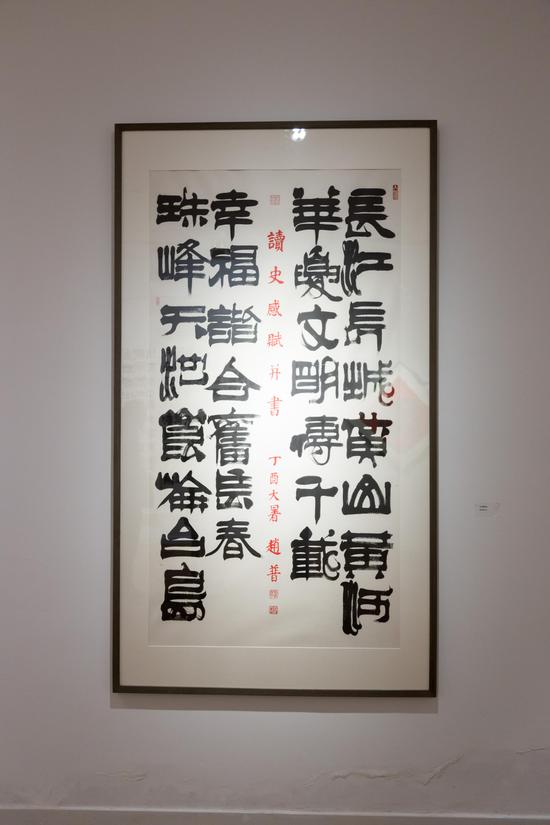 長江長城黃山黃河
華夏文明傳千載
讀史感賦并書 丁酉大暑 趙普
幸福諧合奮長春
珠峰天池崑崙台島